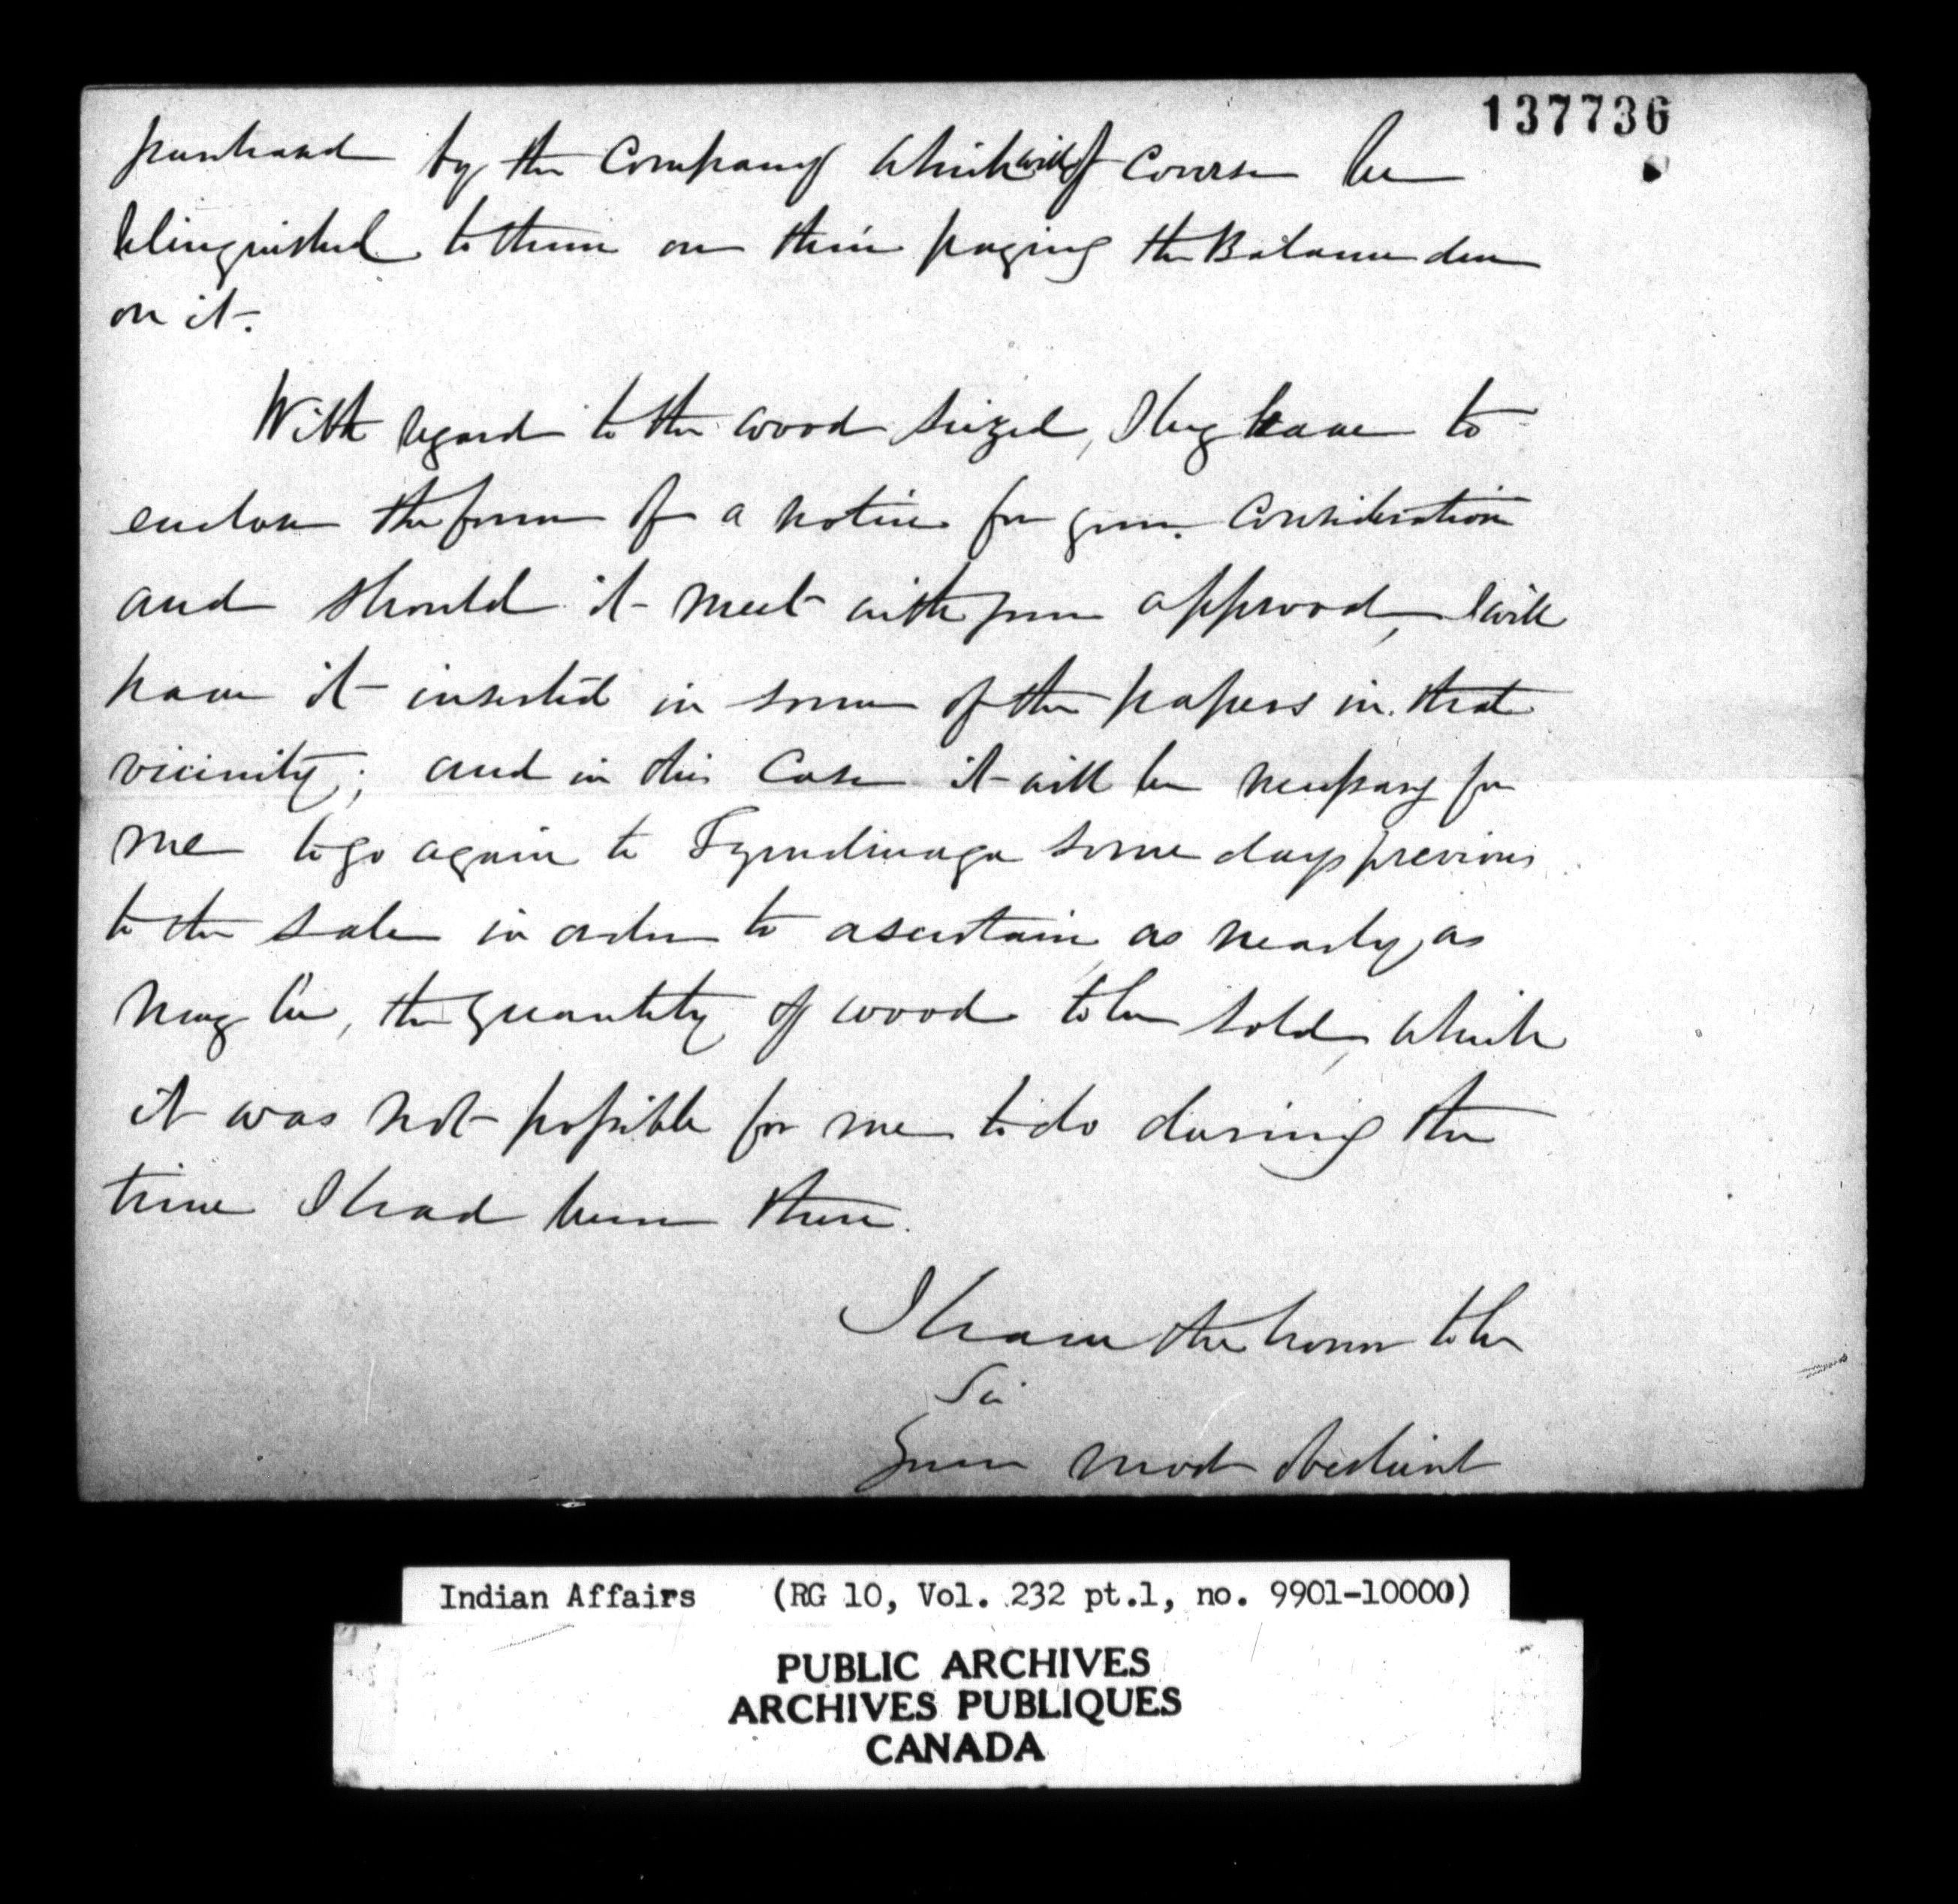 137736
purchased by the Company which will of course be
relinquished to them on their paying the Balance due
on it.
With regard to the wood seized, I beg leave to
enclose the form of a notice for your consideration
and should it meet with your approval, I will
have it inserted in some of the papers in that
vicinity; and in this case it will be necessary for
me to go again to Tyendinaga some days previous
to the sale in order to ascertain, as nearly, as
may be, the quantity of wood to be sold, which
it was not possible for me to do during the
time I had been there.
I have the honor to be
Sir
Your most obedient
Indian Affairs (RG 10, Vol. 232 pt.1, no. 9901-10000)
PUBLIC ARCHIVES
ARCHIVES PUBLIQUES
CANADA